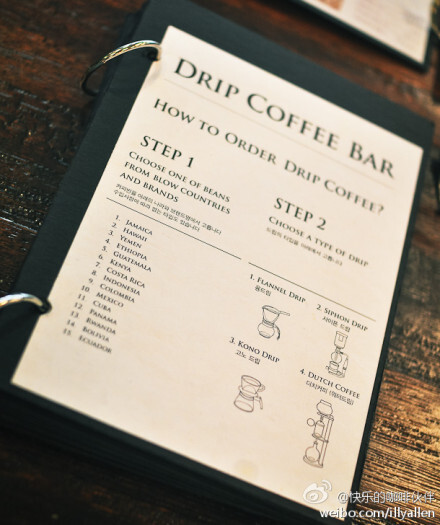 DRIP COFFEE BAR
HOW TO ORDER DRIP COFFEE?
STEP 1
CHOOSE ONE OF BEANS
FROM BLOW COUNTRIES
AND BRANDS
커피빈을 아래의 나라와 브랜드명에서 고릅니다
수입시점에 따라 없는 타입도 있습니다
1. JAMAICA
2. HAWAII
3. YEMEN
4. ETHIOPIA
5. GUATEMALA
6. KENYA
7. COSTA RICA
8. INDONESIA
9. COLOMBIA
10. MEXICO
11. CUBA
12. PANAMA
13. RWANDA
14. BOLIVIA
15. ECUADOR
STEP 2
CHOOSE A TYPE OF DRIP
드립의 타입을 아래에서 고릅니다
1. FLANNEL DRIP
융드립
2. SIPHON DRIP
사이폰 드립
3. KONO DRIP
고노 드립
4. DUTCH COFFEE
더치커피 (워터드립)
@快乐的咖啡伙伴
weibo.com/illyallen